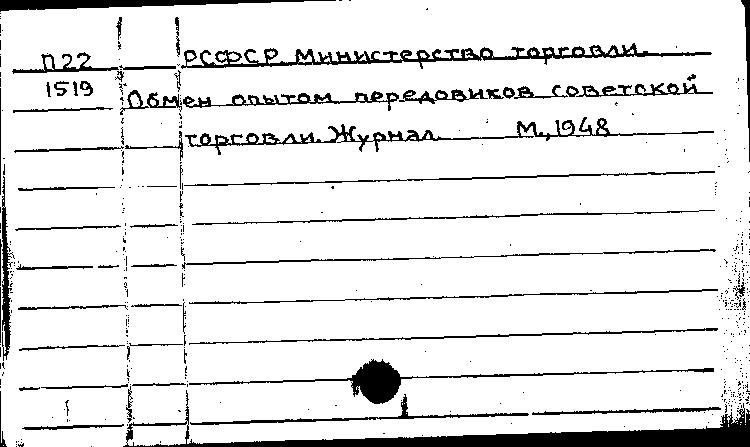 П22 РСФСР. Министерство торговли.
1519 Обмен опытом передовиков советской
торговли. Журнал. М., 1948